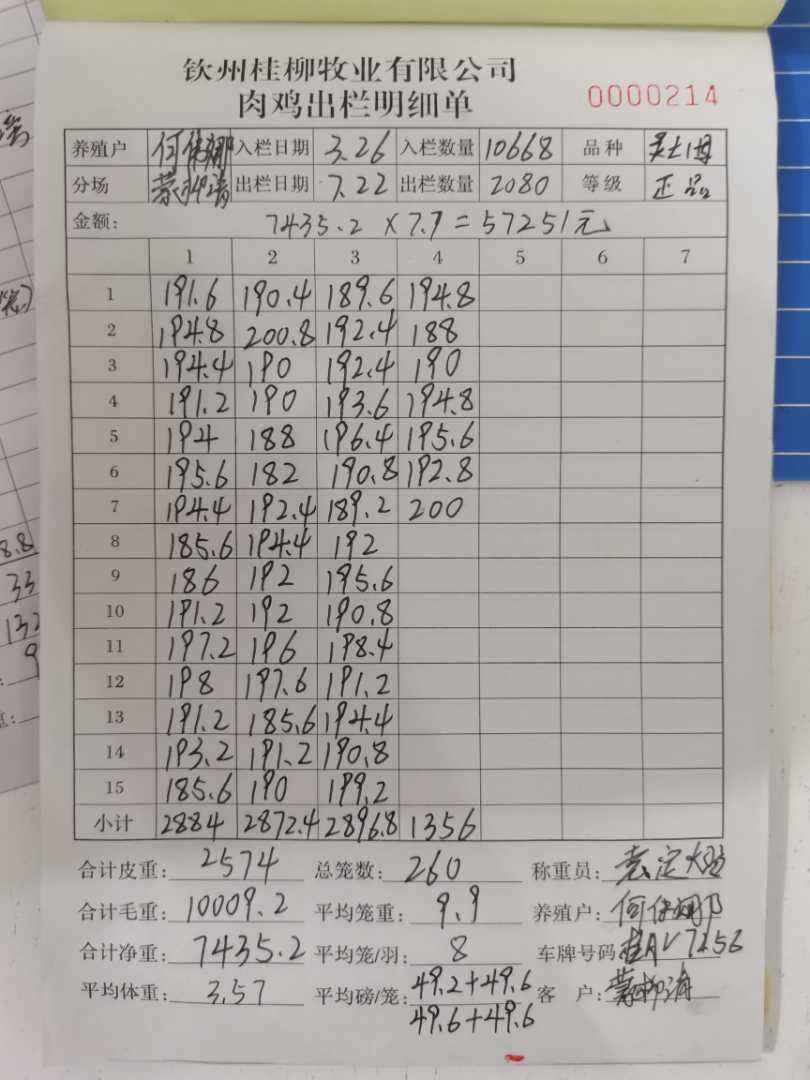 钦州桂柳牧业有限公司
肉鸡出栏明细单 0000214
养殖户 何 娜 入栏日期 3.26 入栏数量 10668 品种
分场 出栏日期 7.22 出栏数量 2080 等级 正品
金额: 7435.2 × 7.7 = 57251元
1 2 3 4 5 6 7
1 191.6 190.4 189.6 194.8
2 194.8 200.8 192.4 188
3 194.4 190 192.4 190
4 191.2 190 193.6 194.8
5 194 188 196.4 195.6
6 195.6 182 190.8 192.8
7 194.4 192.4 189.2 200
8 185.6 194.4 192
9 186 192 195.6
10 191.2 192 190.8
11 197.2 196 198.4
12 198 197.6 191.2
13 191.2 185.6 194.4
14 193.2 191.2 190.8
15 185.6 190 199.2
小计 2884 2872.4 2896.8 1356
合计皮重: 2574 总笼数: 260 称重员:
合计毛重: 10009.2 平均笼重: 9.9 养殖户: 何 娜
合计净重: 7435.2 平均笼/羽: 8 车牌号码
平均体重: 3.57 平均磅/笼: 49.2+49.6 客 户:
49.6+49.6